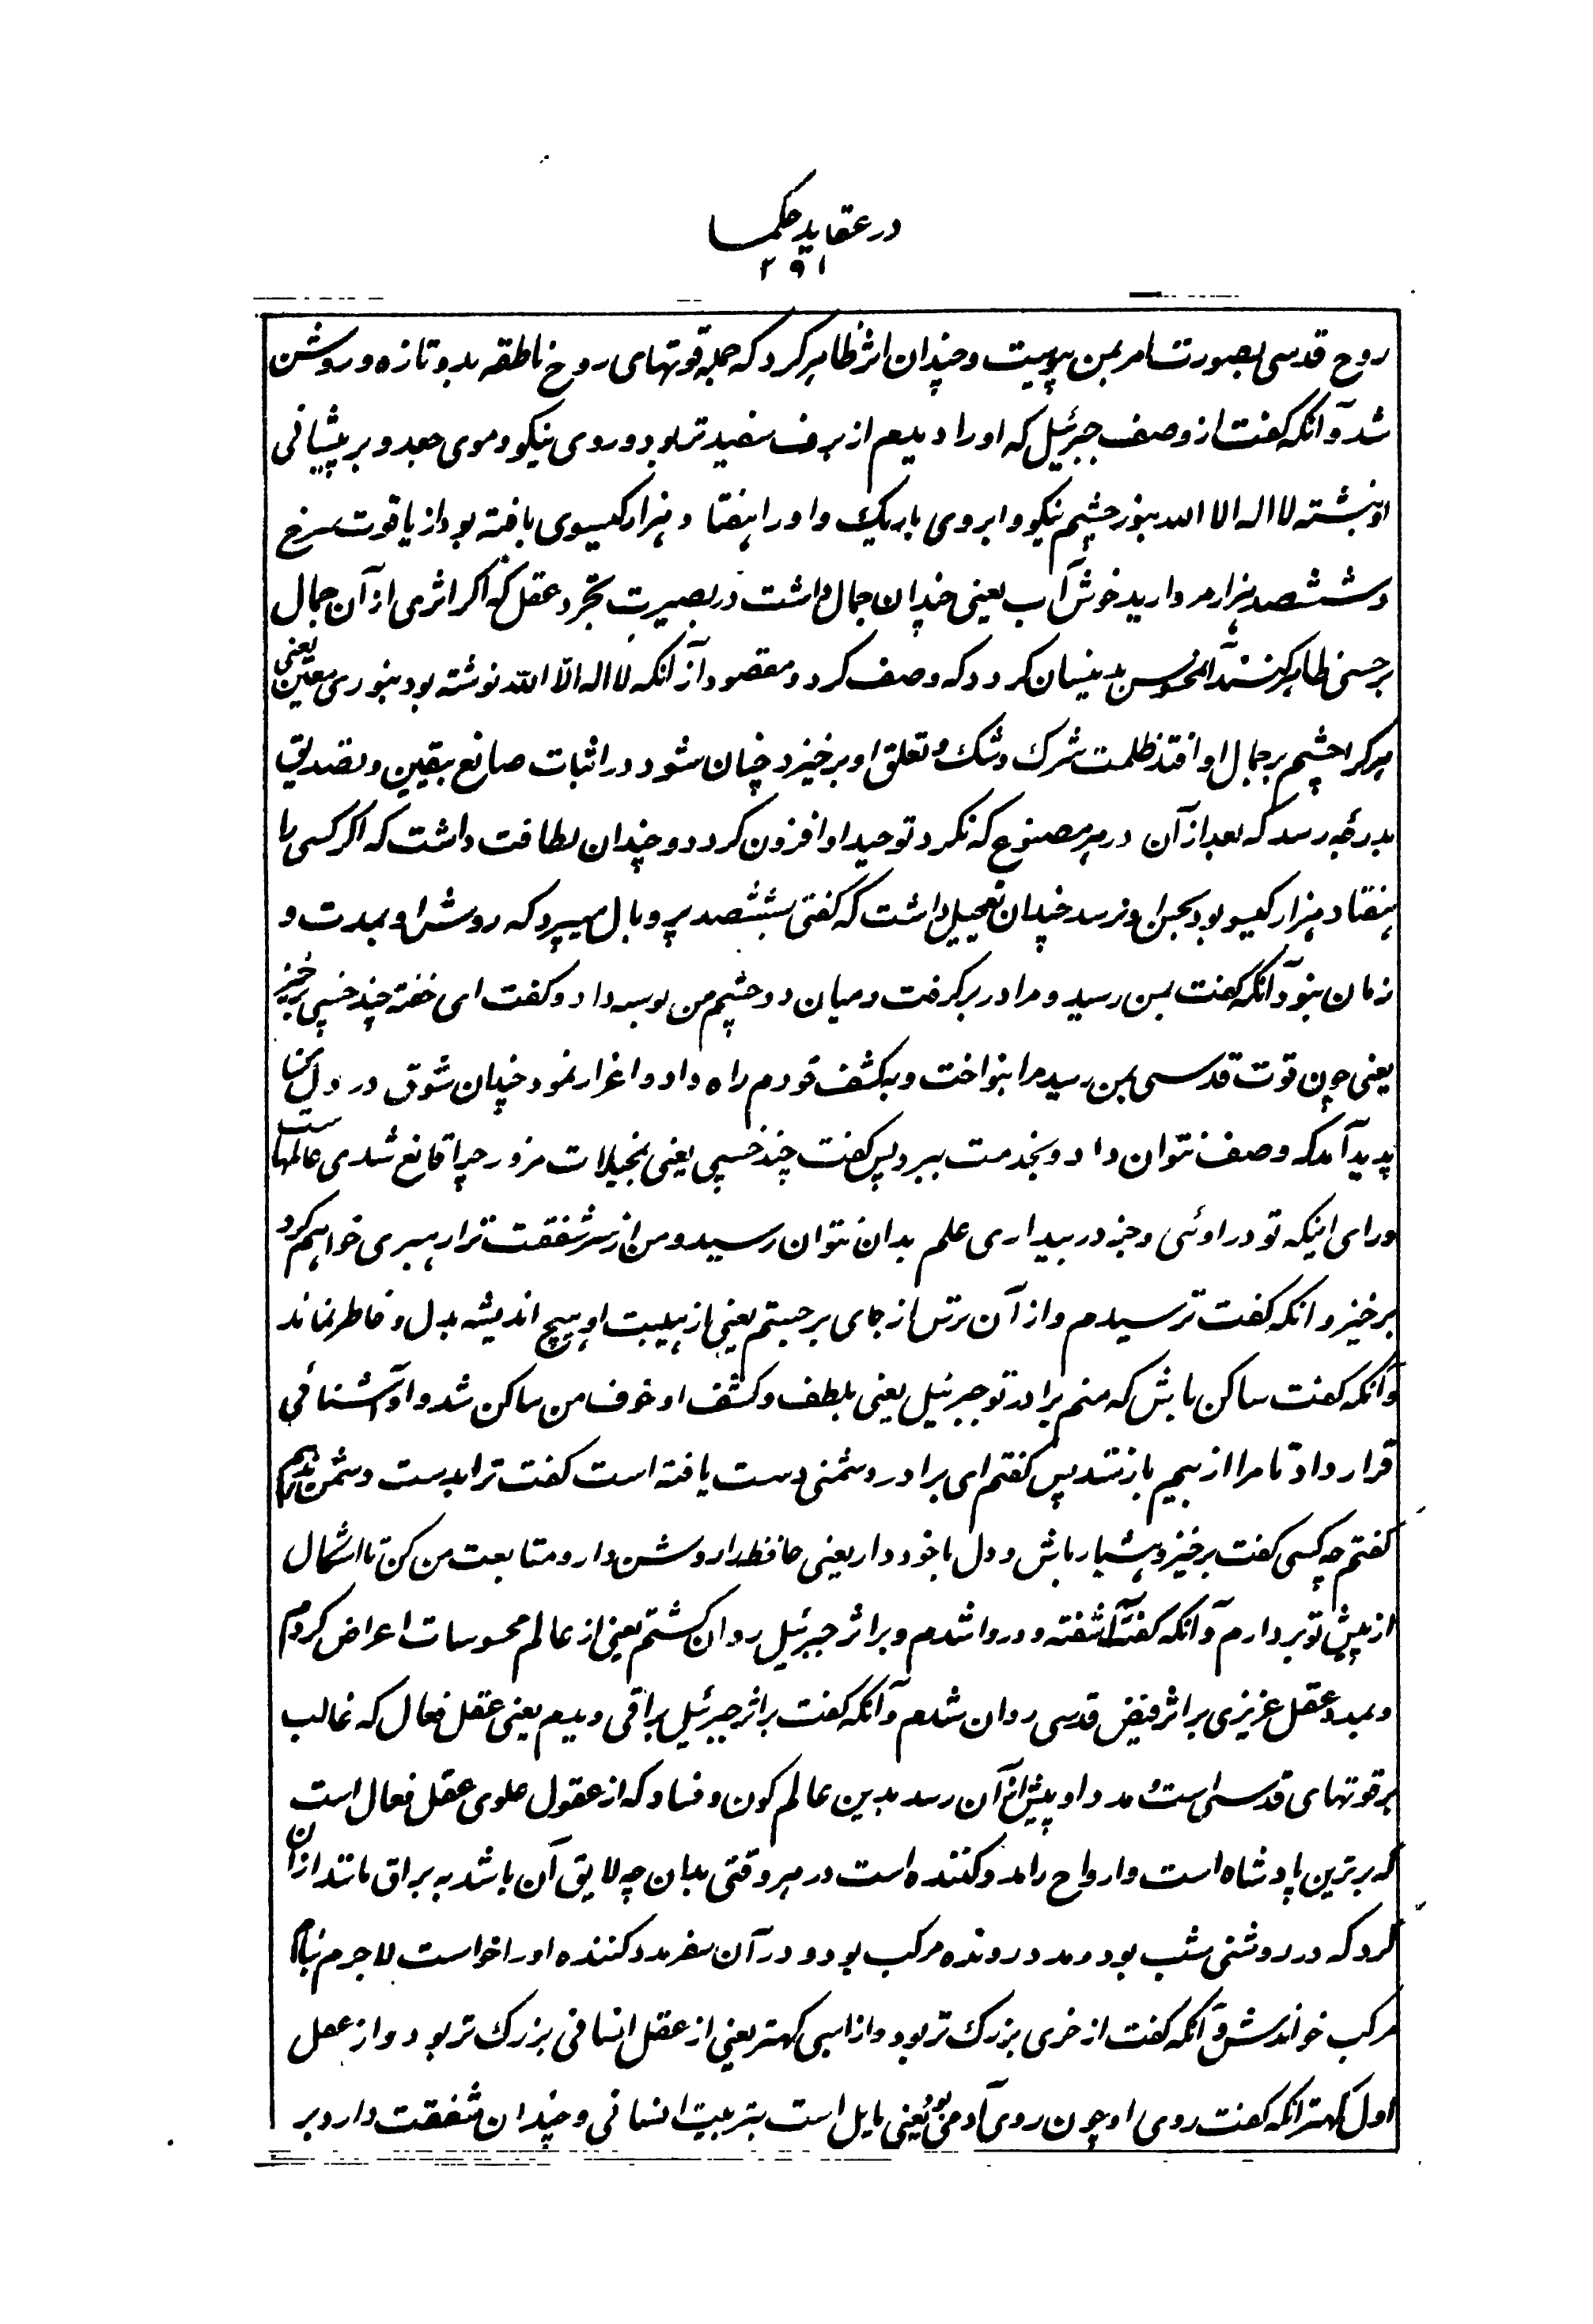 در عقاید حکما
۲۹۱
روح قدسی بصورت امر بمن پیوست و چندان اثر ظاهر کرد که جمله قوتهای روح ناطقه بدو تازه و روشن
شد و آنکه گفت از وصف جبرئیل که اورا دیدم از برف سفیدتر بود و روی نیکو و موی جعد و بر پیشانی
او نبشته لا اله الا الله بنور چشم نیکو و ابروی باریک و اورا هفتاد هزار گیسوی بافته بود از یاقوت سرخ
و ششصد هزار مروارید خوش آب یعنی چندان جمال داشت در بصیرت تجرد عقل که اگر اثری از آن جمال
بر حسی ظاهر کنند آن محسوس بدینسان گردد که وصف کرد و مقصود از آنکه لا اله الا الله نوشته بود بنوری معین یعنی
هر کرا چشم بر جمال او افتد ظلمت شرک و شک و تعلق او برخیزد چنان شود در اثبات صانع بیقین و تصدیق
بدرجه رسد که بعد از آن در هر مصنوع که نگرد توحید او افزون گردد و چندان لطافت داشت که اگر کسی را
هفتاد هزار گیسو بود بحسن او نرسد چندان تعجیل داشت که گفتی بششصد پر و بال میپرد که روش او بمدت و
زمان نبود آنکه گفت بمن رسید و مرا در بر گرفت و میان دو چشم من بوسه داد و گفت ای خفته چند خسپی برخیز
یعنی چون قوت قدسی بمن رسید مرا بنواخت و بکشف خودم راه داد و اعزاز نمود چندان شوق در دل من
پدید آمد که وصف نتوان داد و بخدمت ببرد پس گفت چند خسپی یعنی بخیلات مزور چرا قانع شدی عالمهاست
ورای اینکه تو در اوئی و جز در بیداری علم بدان نتوان رسید و من از سر شفقت ترا رهبری خواهم کرد
برخیز و آنکه گفت ترسیدم و از آن ترس از جای برجستم یعنی از هیبت او هیچ اندیشه بدل و خاطر نماند
و آنکه گفت ساکن باش که منم برادر تو جبرئیل یعنی بلطف و کشف او خوف من ساکن شد و او آشنائی
قرار داد تا مرا از بیم باز ستد پس گفتم ای برادر دشمنی دست یافته است گفت ترا بدست دشمن ندهم
گفتم چه کسی گفت برخیز و هشیار باش و دل با خود دار یعنی حافظه را روشن دار و متابعت من کن تا اشکال
از پیش تو بردارم و آنکه گفت آشفته و دروا شدم و بر اثر جبرئیل روان گشتم یعنی از عالم محسوسات اعراض کردم
و بمدد عقل عزیزی بر اثر فیض قدسی روان شدم و آنکه گفت بر اثر جبرئیل براقی دیدم یعنی عقل فعال که غالب
بر قوتهای قدسی است و مدد او پیش از آن رسد بدین عالم کون و فساد که از عقول علوی عقل فعال است
که برترین پادشاه است و ارواح را مدد کننده است در هر وقتی بدان چه لایق آن باشد به براق مانند از آن
کرد که در روشنی شب بود و مدد رونده مرکب بود و در آن سفر مدد کننده او را خواست لاجرم بنام
مرکب خواندش و آنکه گفت از خری بزرگ تر بود و از اسبی کهتر یعنی از عقل انسانی بزرگ تر بود و از عقل
اول کهتر آنکه گفت روی او چون روی آدمی بود یعنی مایل است بتربیت انسانی و چندان شفقت دارد بر